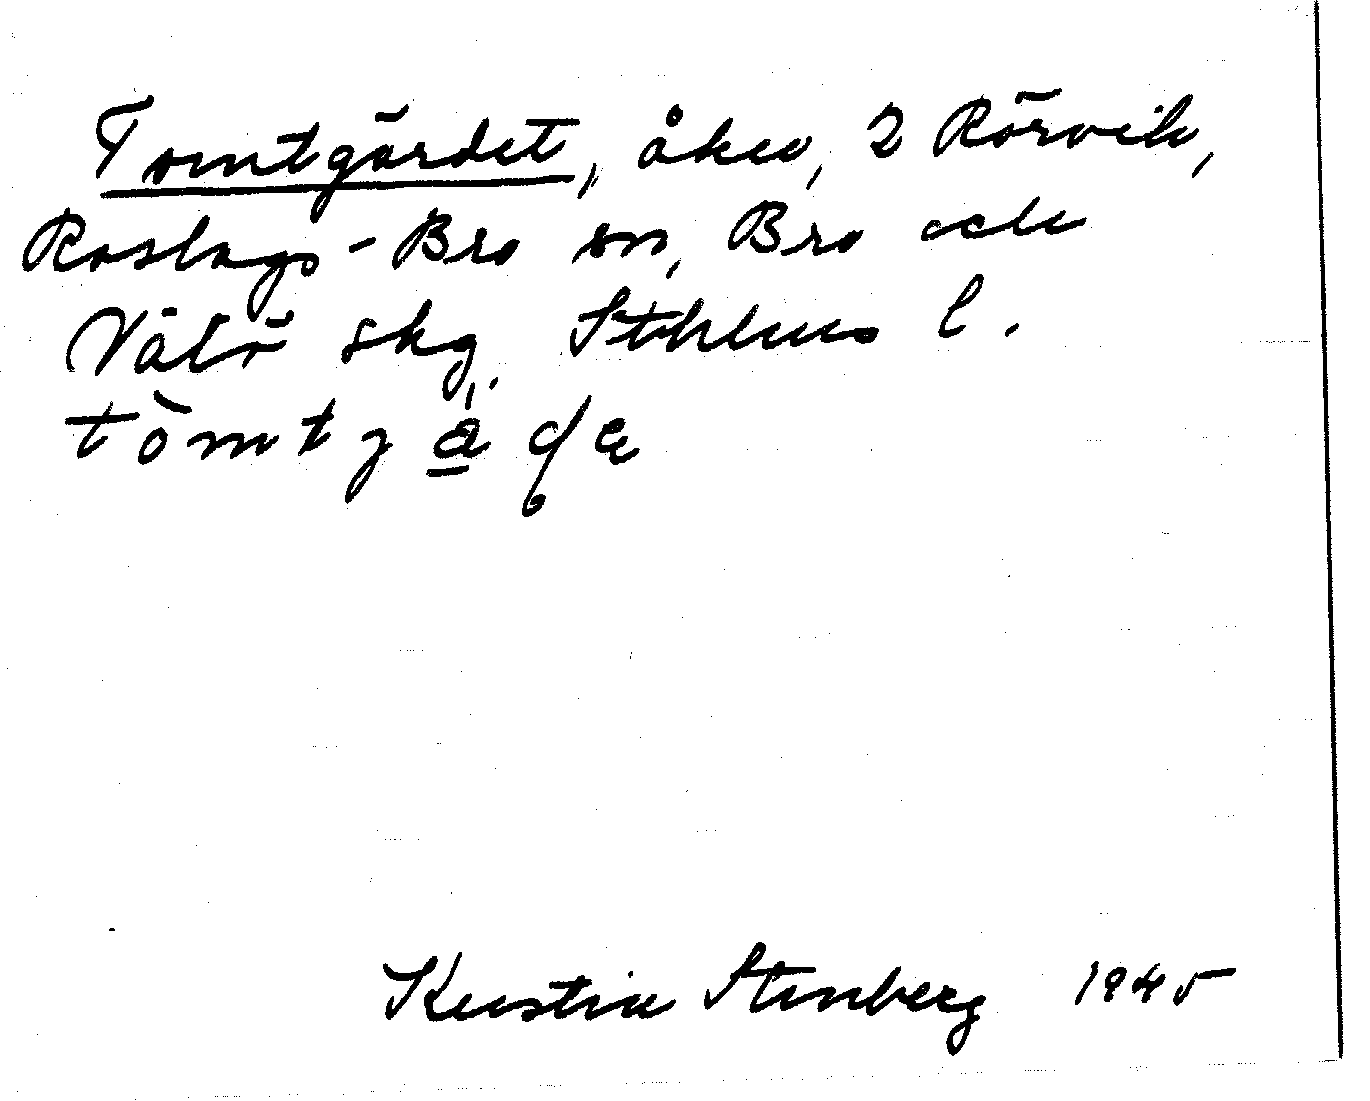 Tomtgärdet, åker, 2 Rörvik,
Roslags-Bro sn, Bro och
Vätö skg. Sthlms l.
Kerstin Stenberg 1945